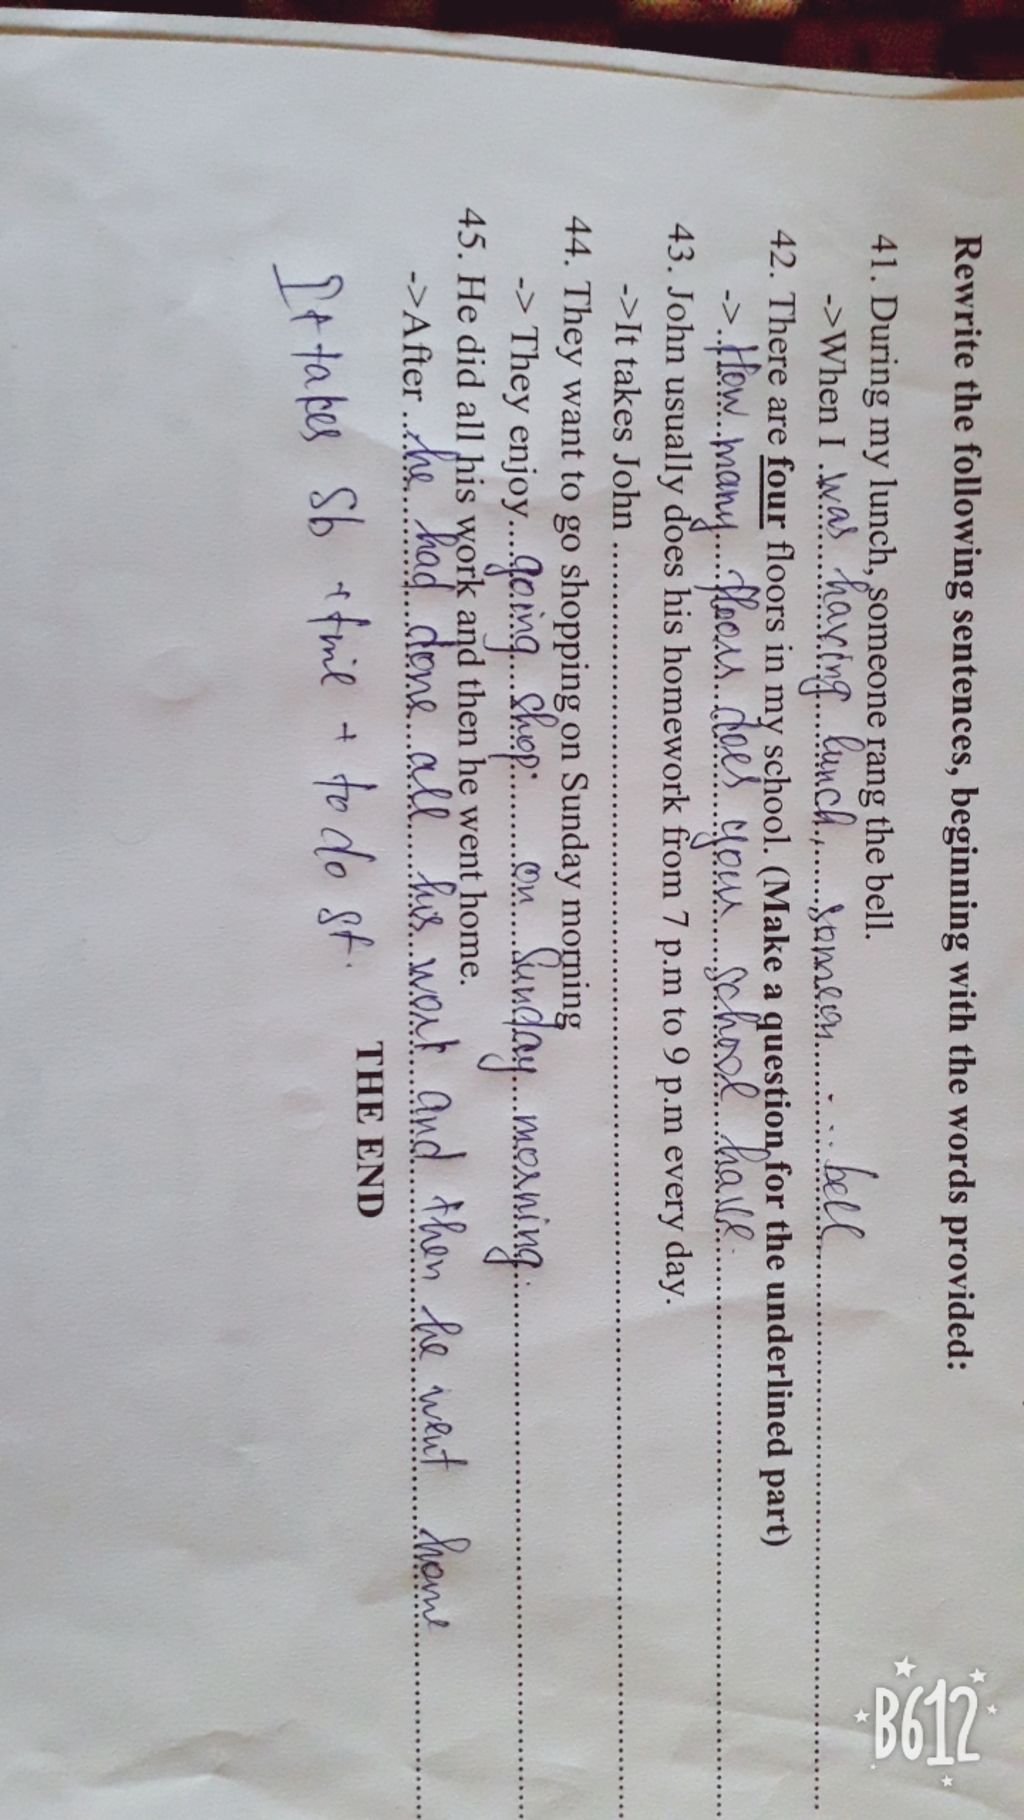 Rewrite the following sentences, beginning with the words provided:
41. During my lunch, someone rang the bell.
->When I .was having lunch, someon ... bell
42. There are four floors in my school. (Make a question for the underlined part)
->.How many floors does your school have.
43. John usually does his homework from 7 p.m to 9 p.m every day.
->It takes John ..........
44. They want to go shopping on Sunday morning
-> They enjoy....going shop. on Sunday morning.
45. He did all his work and then he went home.
->After ..he had done all his work and then he went home
THE END
It takes Sb + time + to do st.
B612